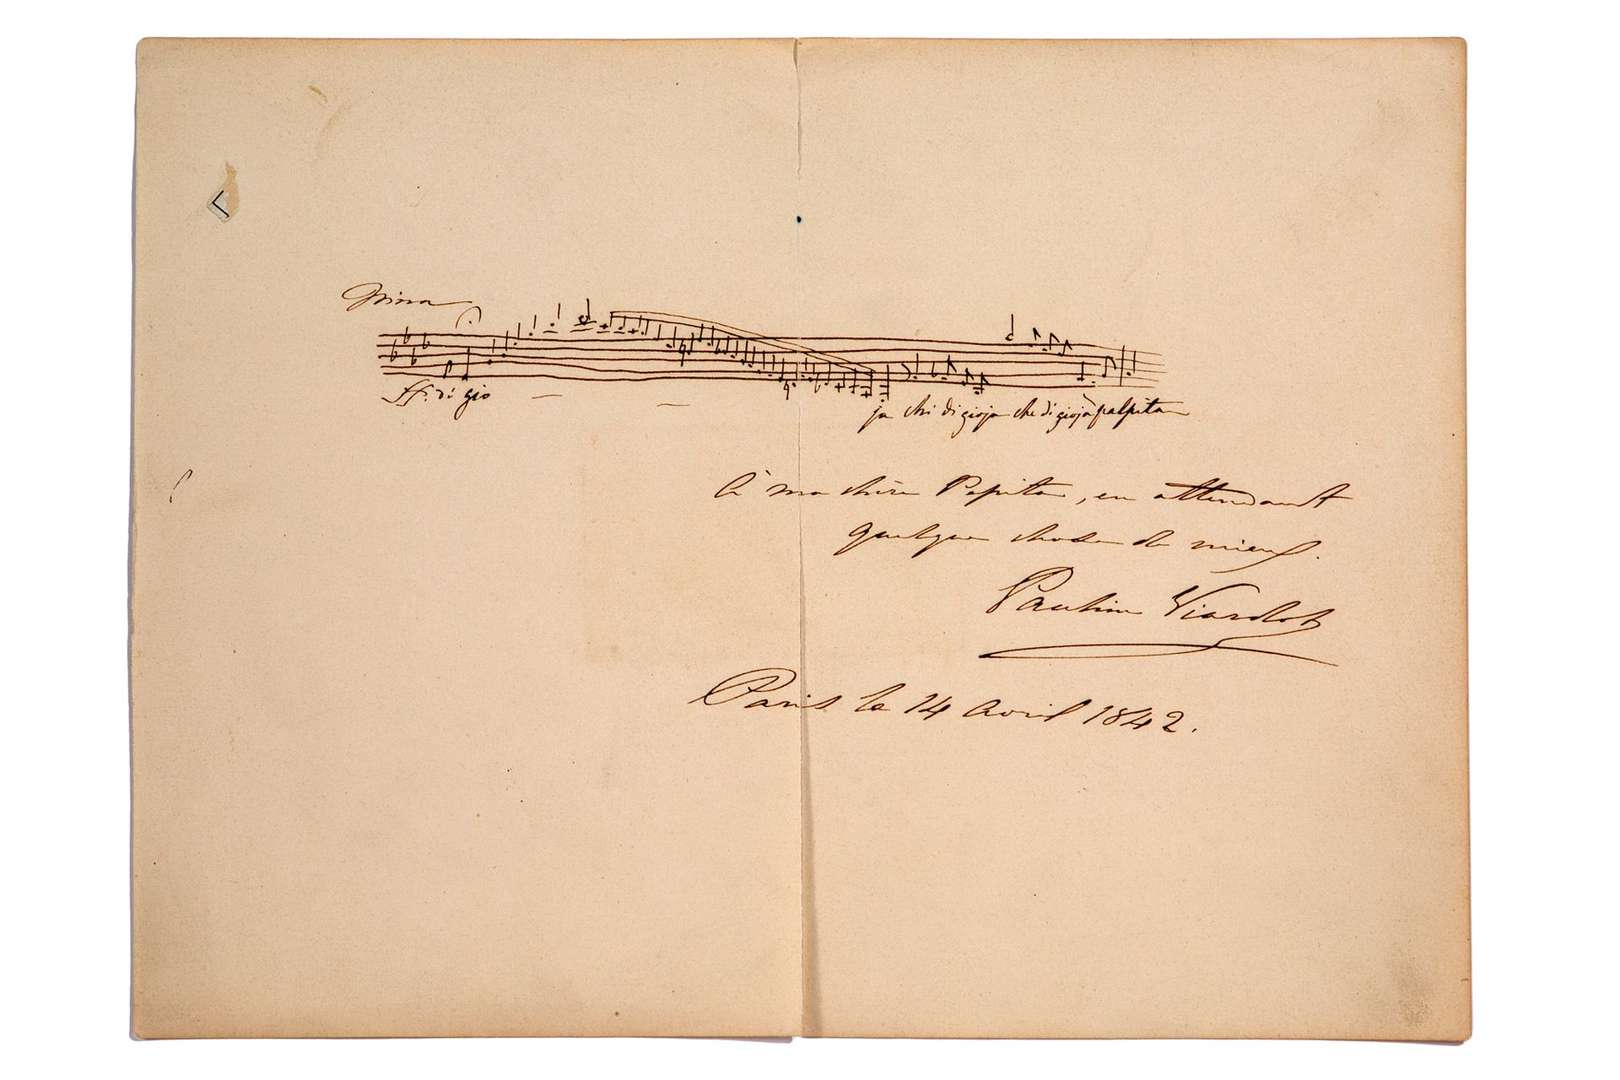 Nina
ff. di gio
ja chi di gioja che di gioja palpita
à ma chère Pepita, en attendant
quelque chose de mieux.
Pauline Viardot
Paris le 14 avril 1842.